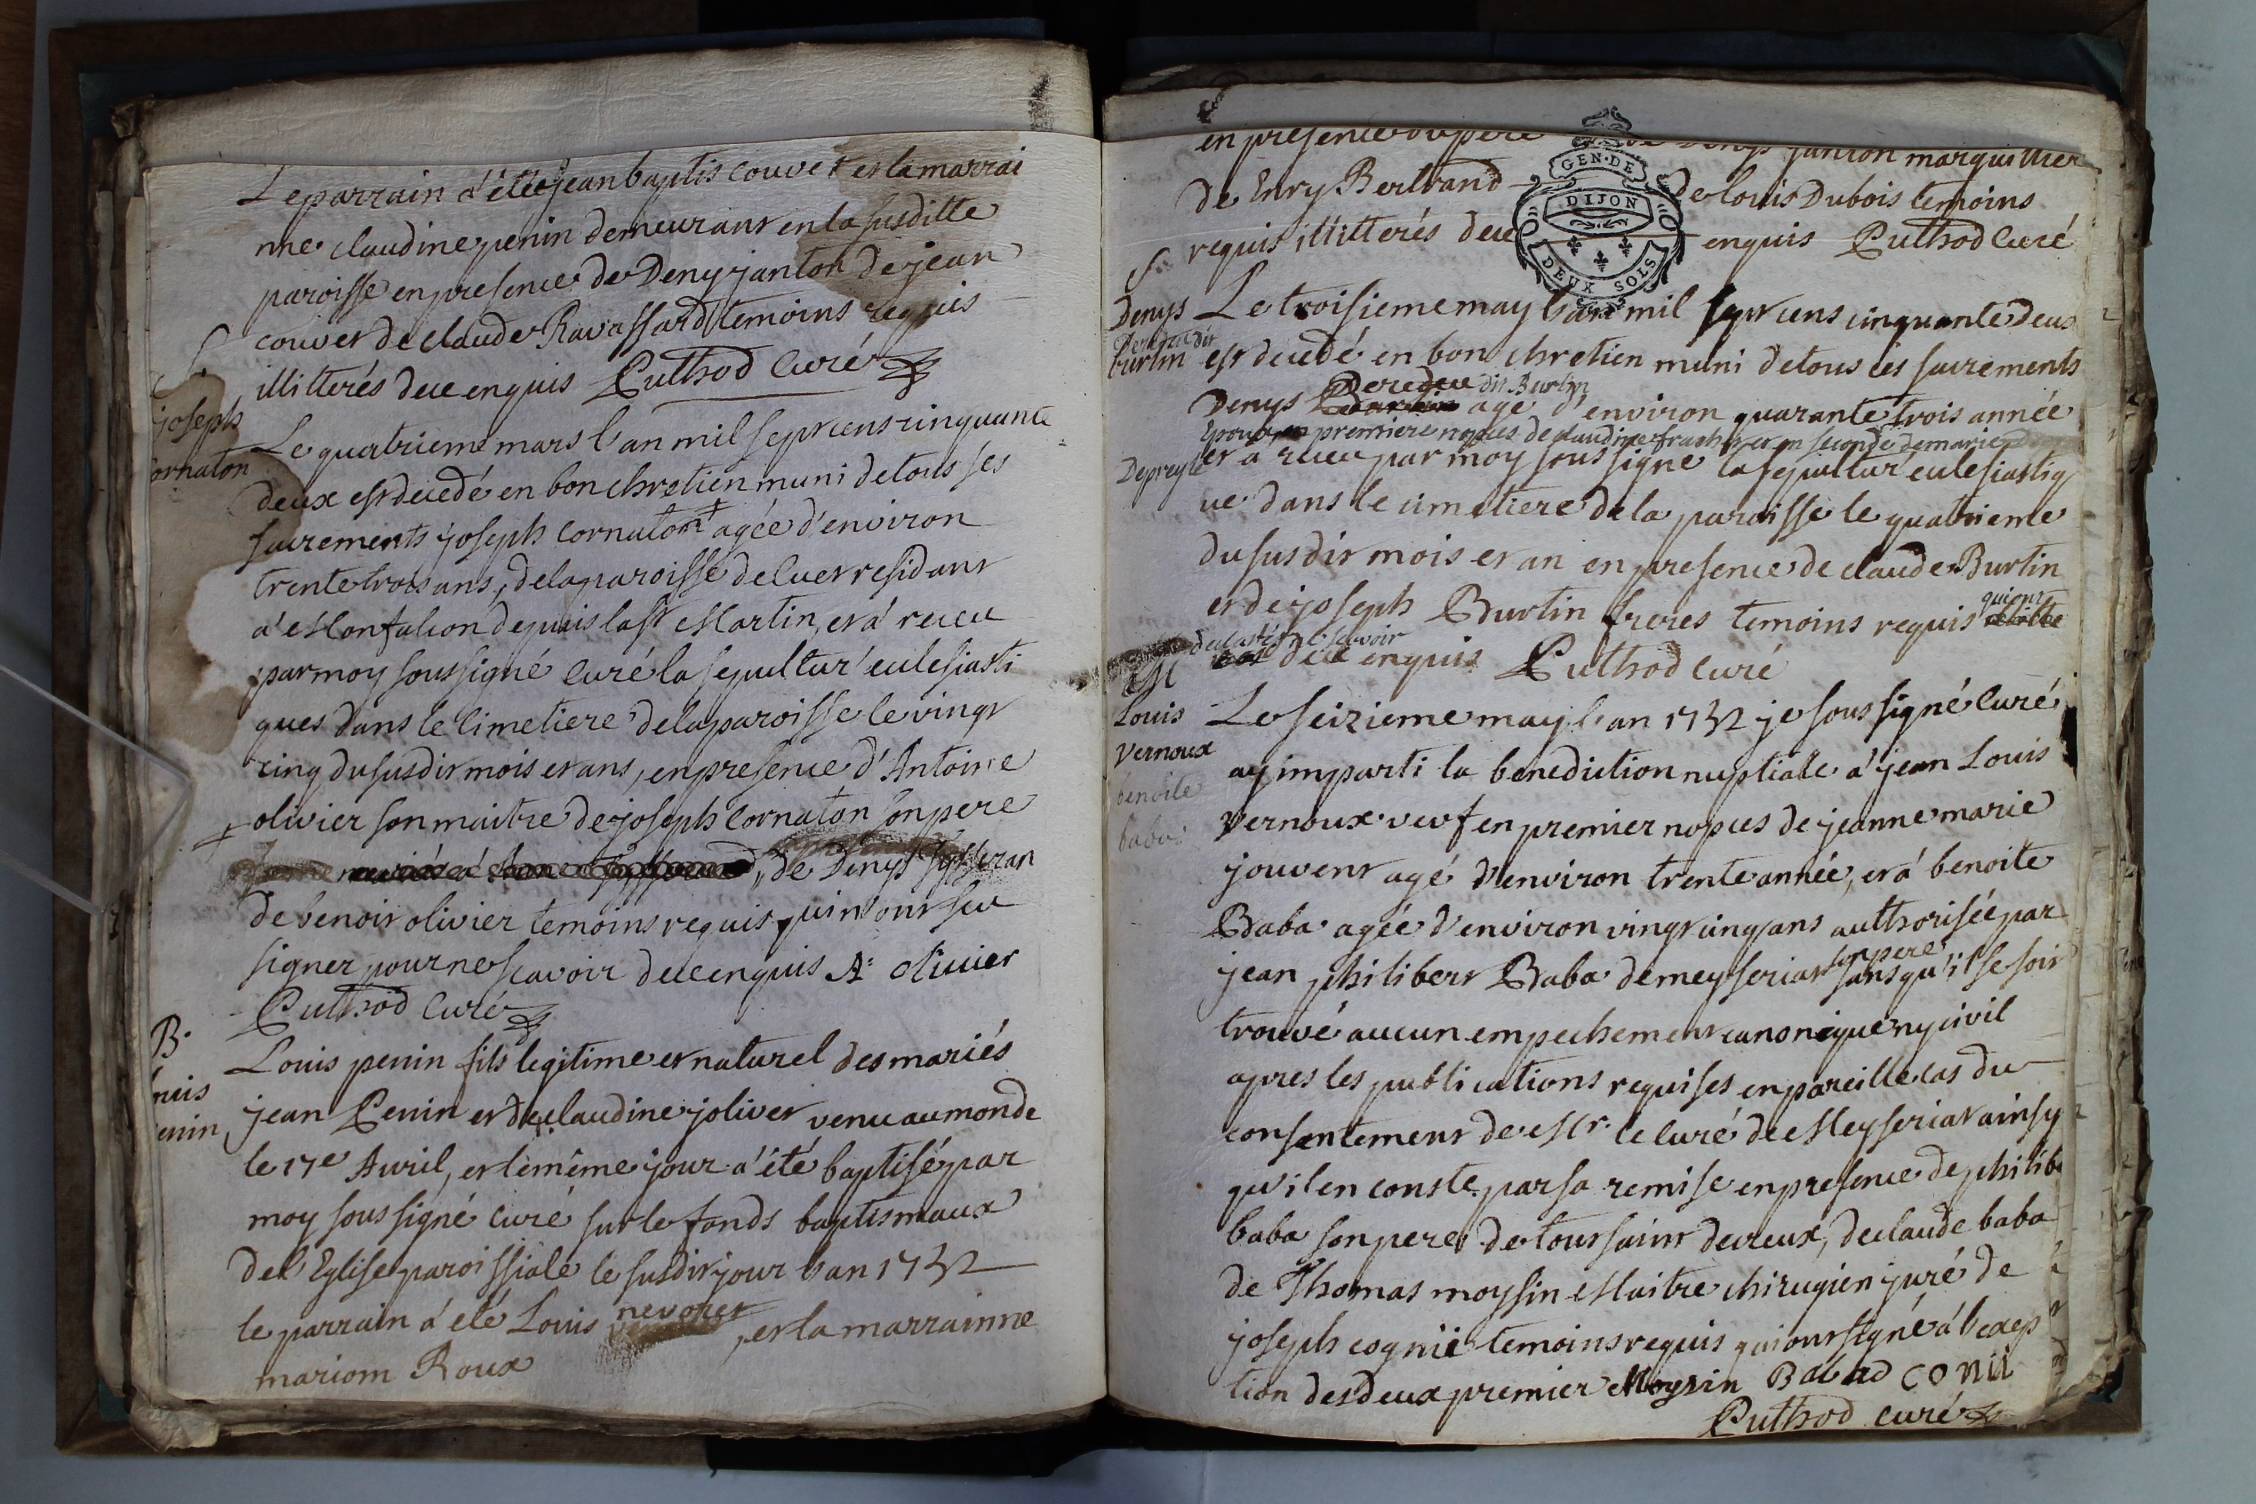 Le parrain a été jean baptis couvet et la marrai
nne claudine penin demeurant en la susditte
paroisse en presence de Deny janton de jean
couvet de claude Ravassard temoins requis
illitterés de ce enquis Puthod Curé
S.
joseph
Cornaton
Le quatrieme mars l'an mil sept cens cinquante
deux est decedé en bon chretien muni de tous ses
sacrements joseph Cornaton + agée d'environ
trente trois ans, de la paroisse de Cuet residant
a Montfalcon depuis la st Martin, et a receu
par moy soussigné Curé la sepultur eclesiasti
ques dans le Cimetiere de la paroisse le vingt
cinq du susdit mois et ans, en presence d'Antoine
olivier son maitre de joseph Cornaton son pere
+
, de Denys
de benoit olivier temoins requis qui n'ont sceu
signer pour ne scavoir de ce enquis A: olivier
Puthod Curé
B.
Louis
penin
Louis penin fils legitime et naturel des mariés
jean Penin et de claudine jolivet venu au monde
le 17e Avril, et le même jour a été baptisé par
moy soussigné Curé sur le fonds baptismaux
de l'Eglise paroissiale le susdit jour l'an 1752
le parrain a été Louis nevoret, et la marrainne
mariom Roux
en presence du pere de Denys janton marquillier
de Enry Bertrand de louis Dubois temoins
requis illitterés de ce enquis Puthod Curé
GEN. DE
DIJON
DEUX SOLS
S.
Denys
burtin
Le troisieme may l'an mil sept cens cinquante deux
est decedé en bon chretien muni de tous ces sacrements
Denys Deredieu dit Burtin agé d'environ quarante trois année
Epoux en premiere nopces de claudine frachet et en seconde de marie
Depreyle
et a receu par moy soussigné la sepultur eclesiastiq
ue dans le cimetiere de la paroisse le quatrieme
du susdit mois et an en presence de claude Burtin
et de joseph Burtin freres temoins requis qui ont
declarés ne scavoir
de ce enquis Puthod Curé
M
Louis
Vernoux
benoite
baba
Le seizieme may l'an 1752 je soussigné Curé
ay imparti la benediction nuptiale a jean Louis
Vernoux veuf en premier nopces de jeanne marie
jouvent agé d'environ trente année, et a benoite
Baba agée d'environ vingt cinq ans authorisée par
jean philibert Baba de meyseriat son pere sans qu'il se soit
trouvé aucun empechement canonique ny civil
apres les publications requises en pareille cas du
consentement de Mr. le Curé de Meyseriat ainsy
qu'il en conste par sa remise en presence de philib
baba son pere de toussaint devreux, de claude baba
de Thomas moysin Maitre chirugien juré de
joseph cognié temoins requis qui ont signé a l'excep
tion des deux premier Moysin Babad CONII
Puthod curé